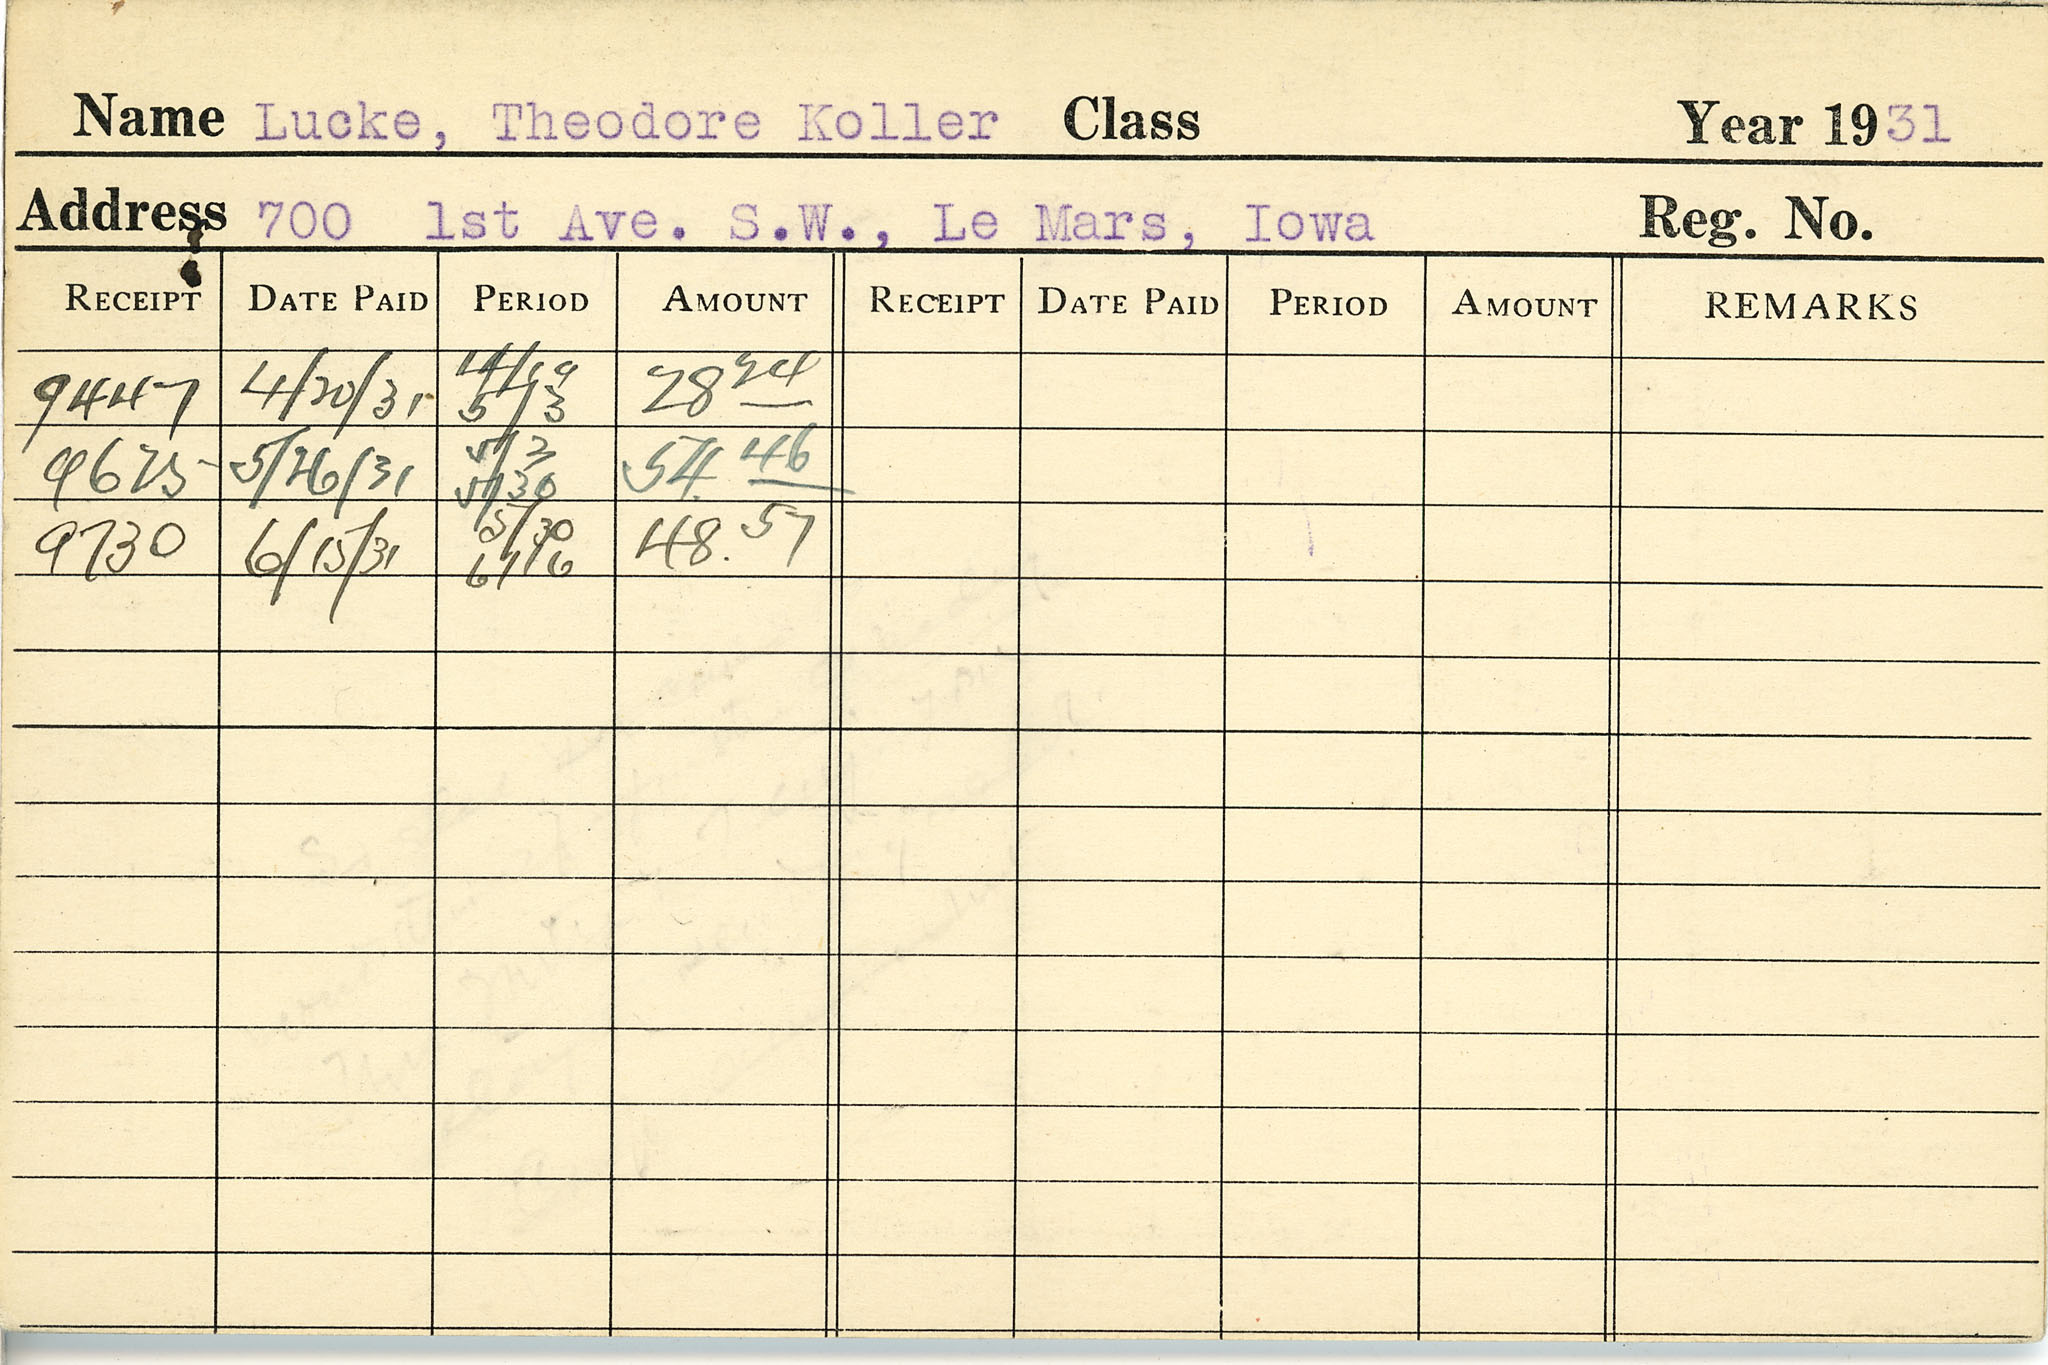 Name Lucke, Theodore Koller Class Year 1931
Address 700 1st Ave. S.W., Le Mars, Iowa Reg. No.
RECEIPT DATE PAID PERIOD AMOUNT RECEIPT DATE PAID PERIOD AMOUNT REMARKS
9447 4/20/31 4/19 5/3 28 24
9675 5/26/31 5/3 5/30 54.46
9730 6/15/31 5/30 6/16 48.57